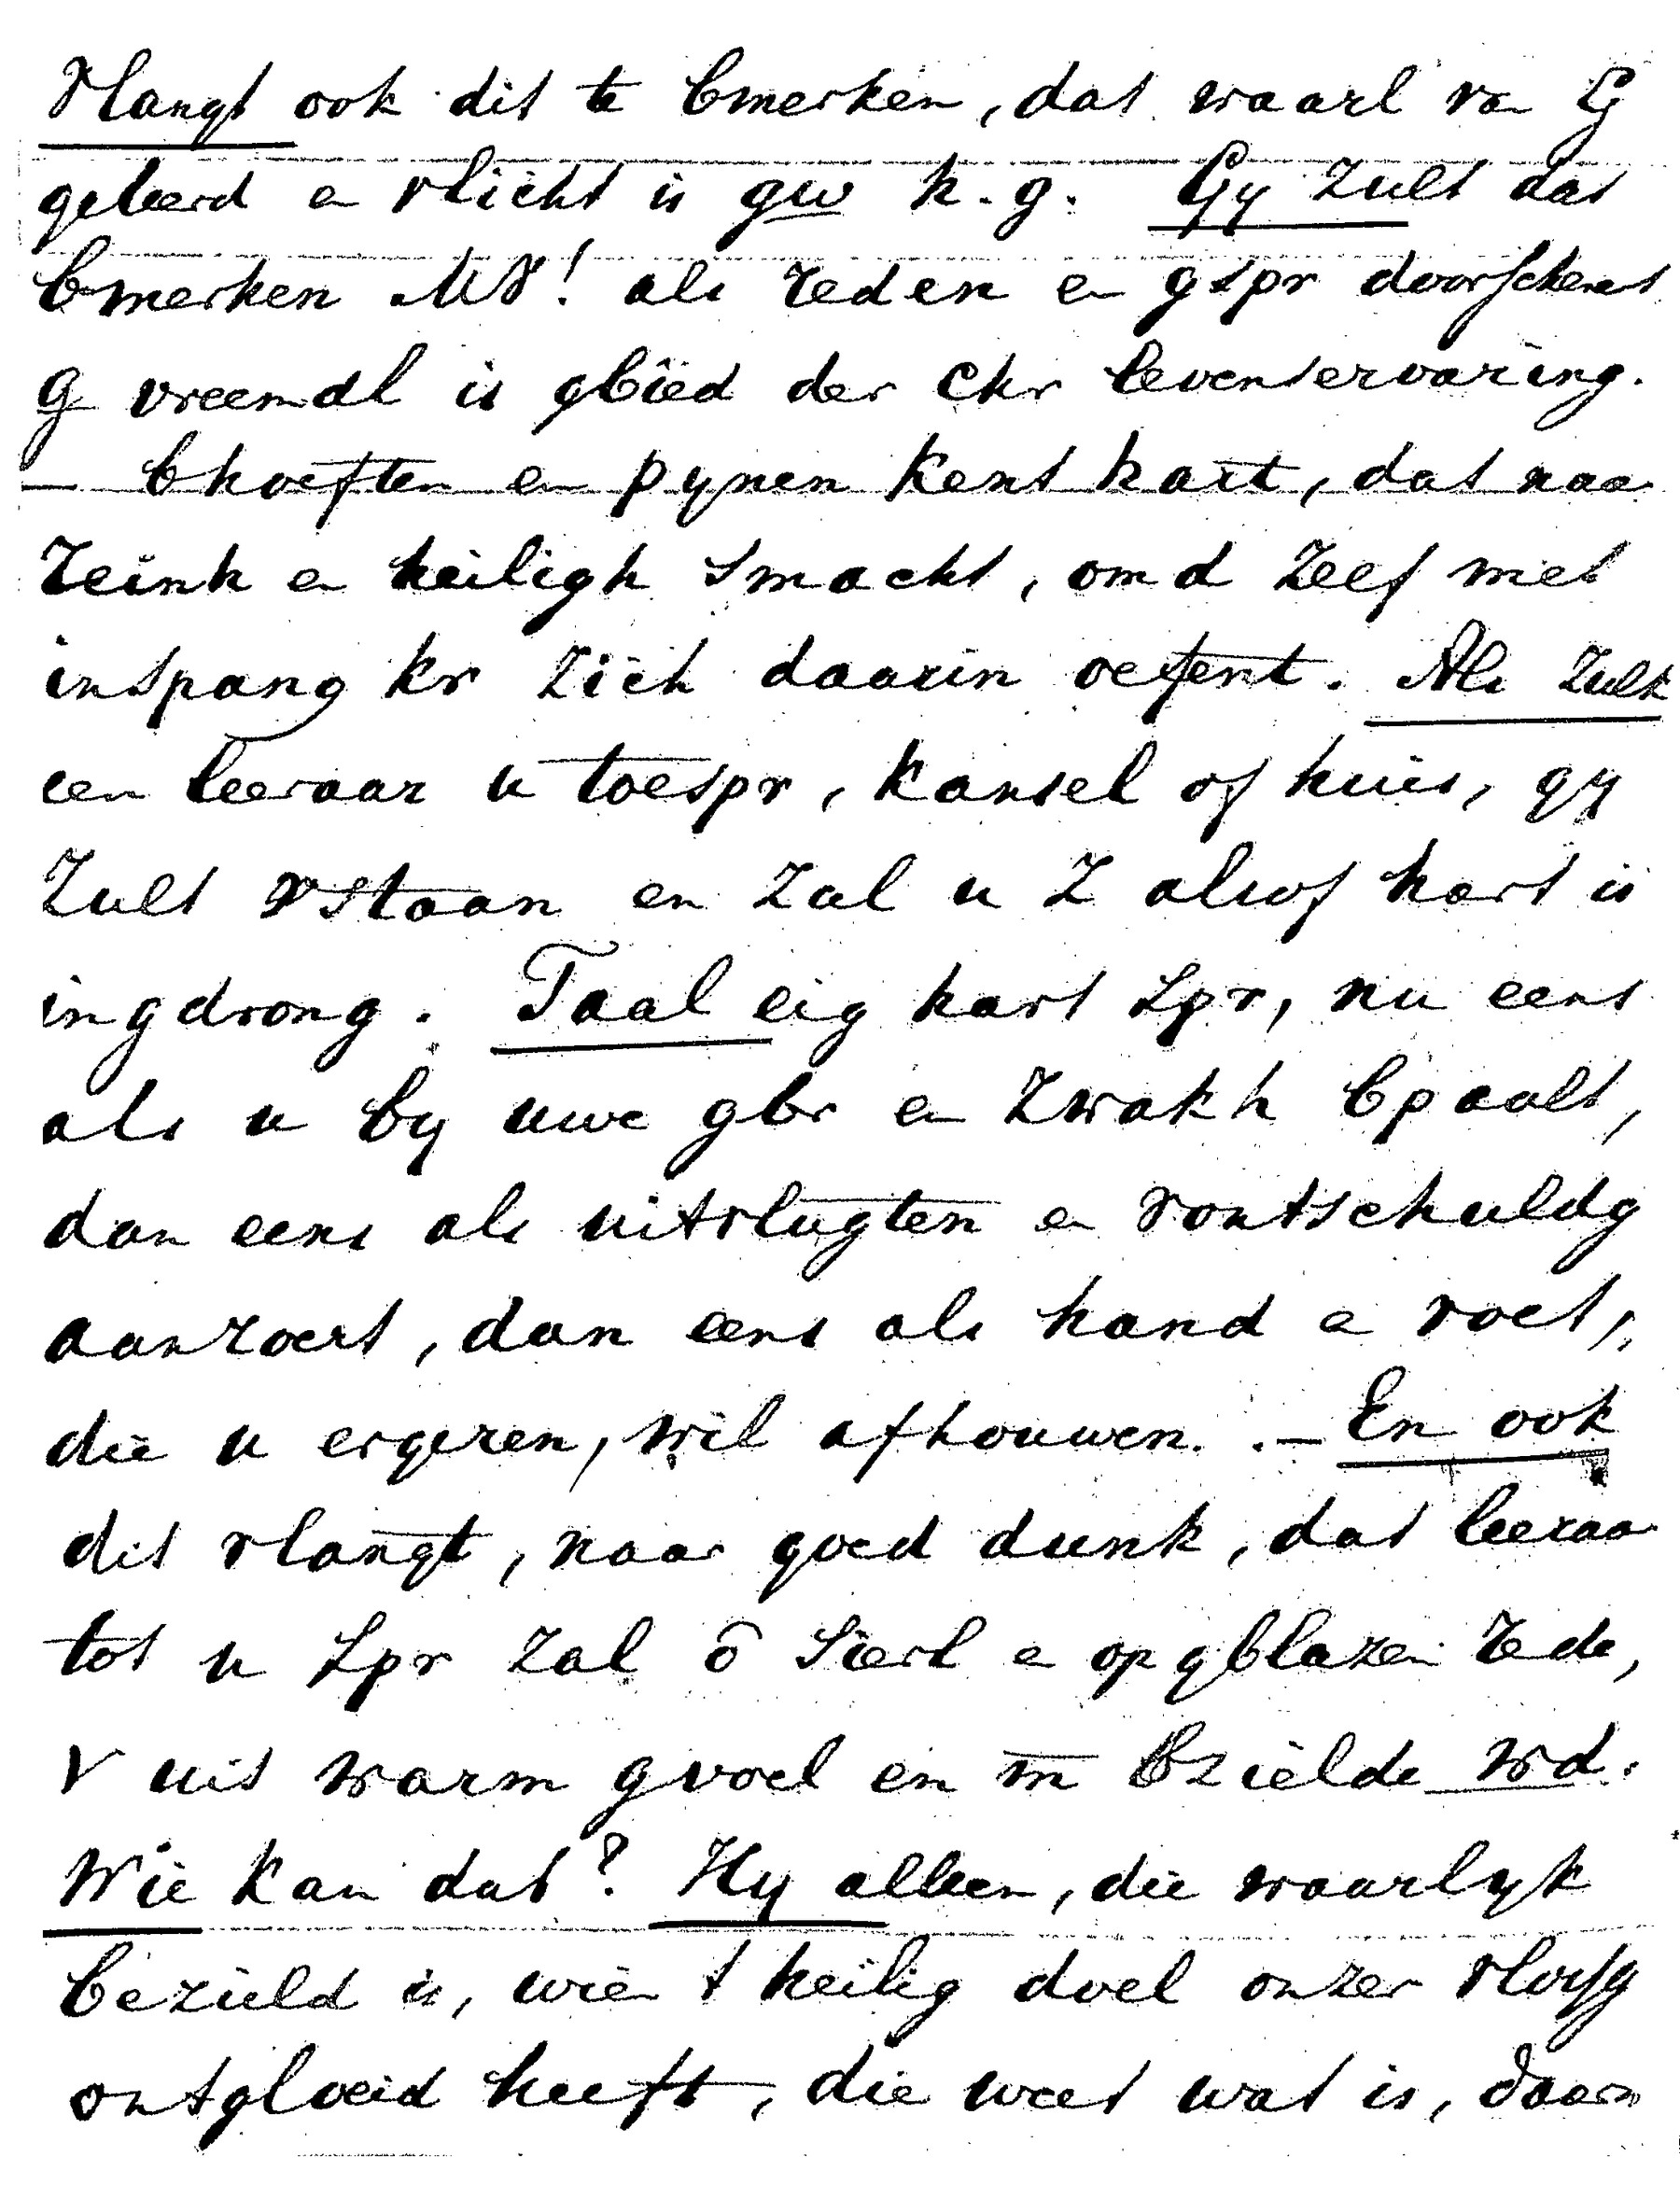 Vlangt ook dit te bmerken, dat waarl va G
geleerd e vlicht is gw h. g. Gy zult dat
bmerken MV! als reden e gspr doorschemt
G vreemdl is gbied der Chr levenservaring.
– bhoeften e pynen kent hart, dat naa
reinh e heiligh smacht, omd zelf met
inspang kr zich daarin oefent. Als zulk
een leeraar u toespr, kansel of huis, gy
zult vstaan en zal u z alsof hart is
ingdrong. Taal eig hart spr, nu eens
als u by uwe gbr e zwakh bpaalt,
dan eens als uitvlugten e vontschuldg
aanvoert, dan eens als hand e voet,
die u ergeren, wil afhouwen. – En ook
dit vlangt, naar goed dunk, dat leeraa
tot u spr zal ō sierl e opgblazen rede,
V uit warm gvoel en m̄ bzielde wd.
Wie kan dat? Hy alleen, die waarlyk
bezield is, wien t heilig doel onzer vlossg
ontgloeid heeft, die weet wat is, daarn